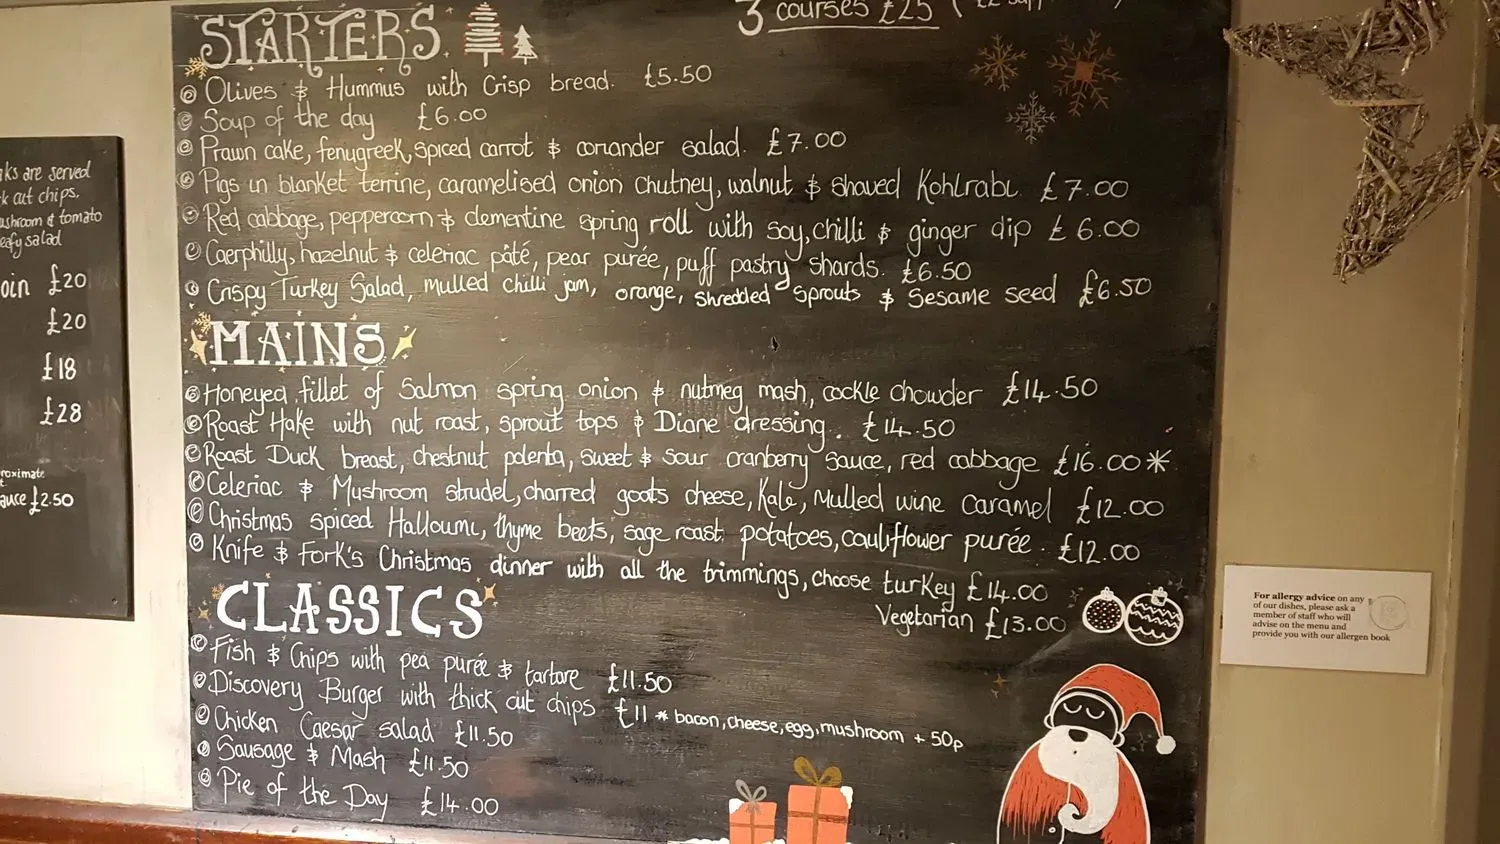 3 courses £25
STARTERS
Olives & Hummus with Crisp bread. £5.50
Soup of the day £6.00
Prawn cake, fenugreek, spiced carrot & coriander salad. £7.00
Pigs in blanket terrine, caramelised onion chutney, walnut & shaved Kohlrabi. £7.00
Red cabbage, peppercorn & clementine spring roll with soy, chilli & ginger dip £6.00
Caerphilly, hazelnut & celeriac pâté, pear purée, puff pastry shards. £6.50
Crispy Turkey Salad, mulled chilli jam, orange, shredded sprouts & sesame seed £6.50
MAINS
Honeyed fillet of Salmon spring onion & nutmeg mash, cockle chowder £14.50
Roast Hake with nut roast, sprout tops & Diane dressing. £14.50
Roast Duck breast, chestnut polenta, sweet & sour cranberry sauce, red cabbage £16.00*
Celeriac & Mushroom strudel, charred goats cheese, Kale, Mulled wine Caramel £12.00
Christmas spiced Halloumi, thyme beets, sage roast potatoes, cauliflower purée. £12.00
Knife & Fork's Christmas dinner with all the trimmings, choose turkey £14.00
Vegetarian £13.00
CLASSICS
Fish & Chips with pea purée & tartare £11.50
Discovery Burger with thick cut chips £11 * bacon, cheese, egg, mushroom + 50p
Chicken Caesar salad £11.50
Sausage & Mash £11.50
Pie of the Day £14.00
ks are served
k cut chips,
ushroom & tomato
eafy salad
oin £20
£20
£18
£28
roximate
t
auce £2.50
For allergy advice on any
of our dishes, please ask a
member of staff who will
advise on the menu and
provide you with our allergen book